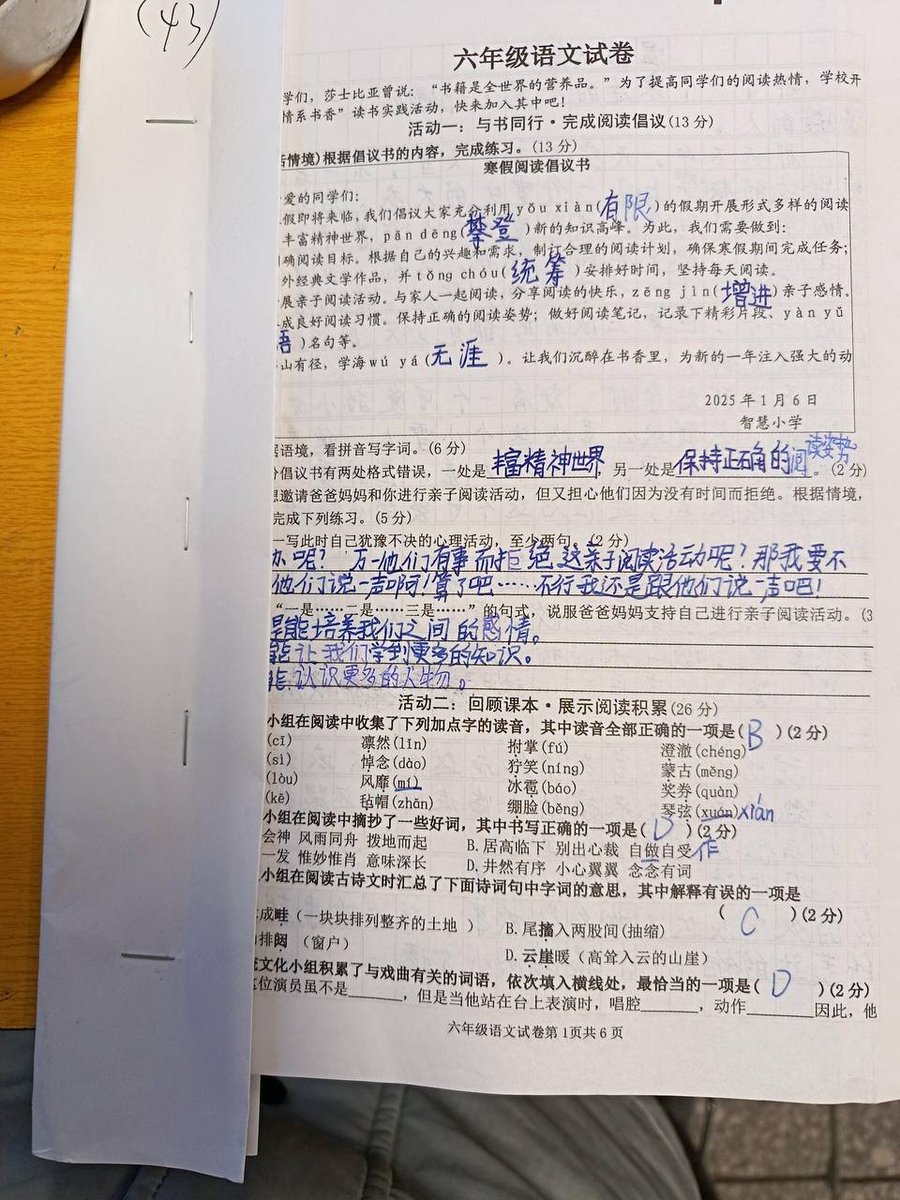 (43)
六年级语文试卷
学们，莎士比亚曾说：“书籍是全世界的营养品。”为了提高同学们的阅读热情，学校开
情系书香”读书实践活动，快来加入其中吧！
活动一：与书同行·完成阅读倡议(13分)
情境)根据倡议书的内容，完成练习。(13分)
寒假阅读倡议书
爱的同学们：
假即将来临，我们倡议大家充分利用yǒu xiàn(有限)的假期开展形式多样的阅读
丰富精神世界，pān dēng(攀登)新的知识高峰。为此，我们需要做到：
确阅读目标。根据自己的兴趣和需求，制订合理的阅读计划，确保寒假期间完成任务；
外经典文学作品，并tǒng chóu(统筹)安排好时间，坚持每天阅读。
展亲子阅读活动。与家人一起阅读，分享阅读的快乐，zēng jìn(增进)亲子感情。
成良好阅读习惯。保持正确的阅读姿势；做好阅读笔记，记录下精彩片段、yàn yǔ
语)名句等。
山有径，学海wú yá(无涯)。让我们沉醉在书香里，为新的一年注入强大的动
2025年1月6日
智慧小学
语境，看拼音写字词。(6分)
倡议书有两处格式错误，一处是丰富精神世界，另一处是保持正确的阅读姿势。(2分)
想邀请爸爸妈妈和你进行亲子阅读活动，但又担心他们因为没有时间而拒绝。根据情境，
完成下列练习。(5分)
一写此时自己犹豫不决的心理活动，至少两句。(2分)
办呢？万一他们有事而拒绝这亲子阅读活动呢？那我要不
他们说一声啊！算了吧……不行我还是跟他们说一声吧！
“一是……二是……三是……”的句式，说服爸爸妈妈支持自己进行亲子阅读活动。(3
是能培养我们之间的感情。
能让我们学到更多的知识。
能认识更多的人物。
活动二：回顾课本·展示阅读积累(26分)
小组在阅读中收集了下列加点字的读音，其中读音全部正确的一项是(B)(2分)
(cī) 凛然(lǐn) 拊掌(fú) 澄澈(chéng)
(sì) 悼念(dào) 狞笑(níng) 蒙古(měng)
(lòu) 风靡(mí) 冰雹(báo) 奖券(quàn)
(kē) 毡帽(zhān) 绷脸(běng) 琴弦(xuán)xián
小组在阅读中摘抄了一些好词，其中书写正确的一项是(D)(2分)
会神 风雨同舟 拨地而起 B.居高临下 别出心裁 自做自受作
一发 惟妙惟肖 意味深长 D.井然有序 小心翼翼 念念有词
小组在阅读古诗文时汇总了下面诗词句中字词的意思，其中解释有误的一项是
(C)(2分)
成畦（一块块排列整齐的土地） B.尾搐入两股间(抽缩)
排闼（窗户） D.云崖暖（高耸入云的山崖）
文化小组积累了与戏曲有关的词语，依次填入横线处，最恰当的一项是(D)(2分)
这位演员虽不是______，但是当他站在台上表演时，唱腔______，动作______因此，他
六年级语文试卷第1页共6页